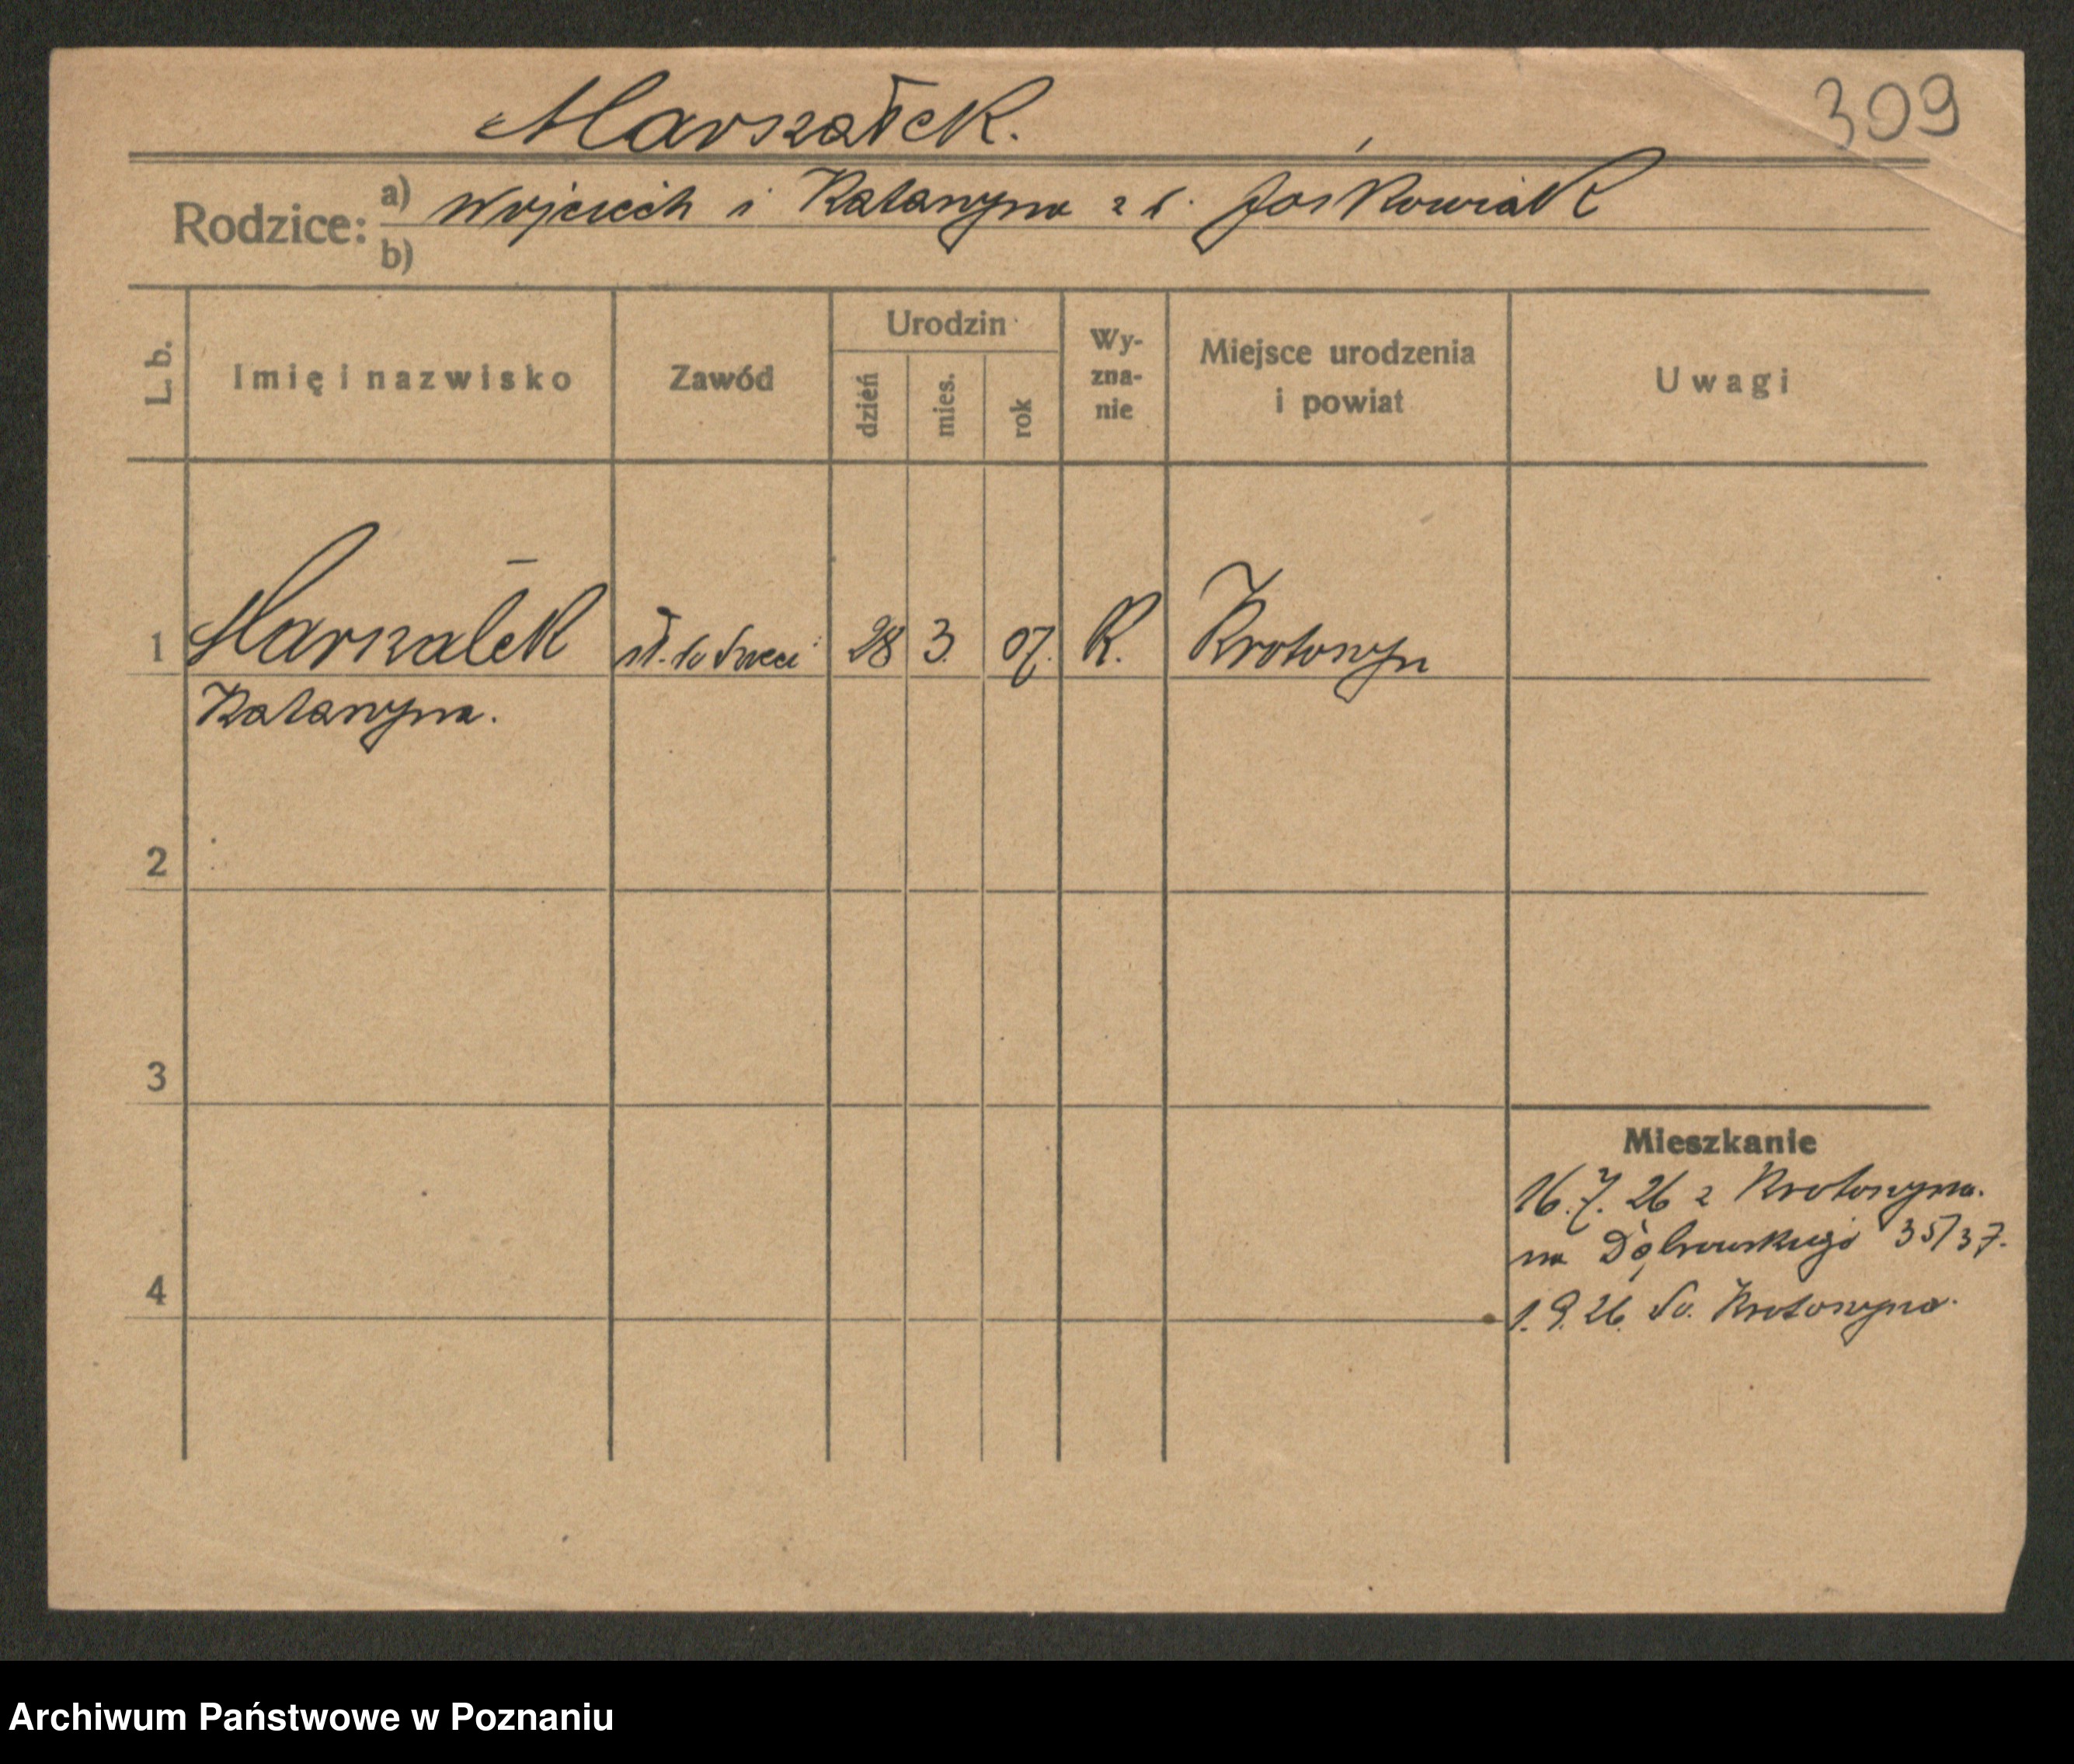 Marszałek.
309
Rodzice:
a) Wojciech i Katarzyna z d. Jaśkowiak
b)
L. b.
Imię i nazwisko
Zawód
Urodzin
dzień
mies.
rok
Wy-
zna-
nie
Miejsce urodzenia
i powiat
Uwagi
1 Marszałek sł. do dzieci 28 3. 07. K. Krotoszyn
Katarzyna.
2
3
Mieszkanie
16.7.26 z Krotoszyna.
na Dąbrowskiego 35/37.
4
1.9.26. do. Krotoszyna.
Archiwum Państwowe w Poznaniu